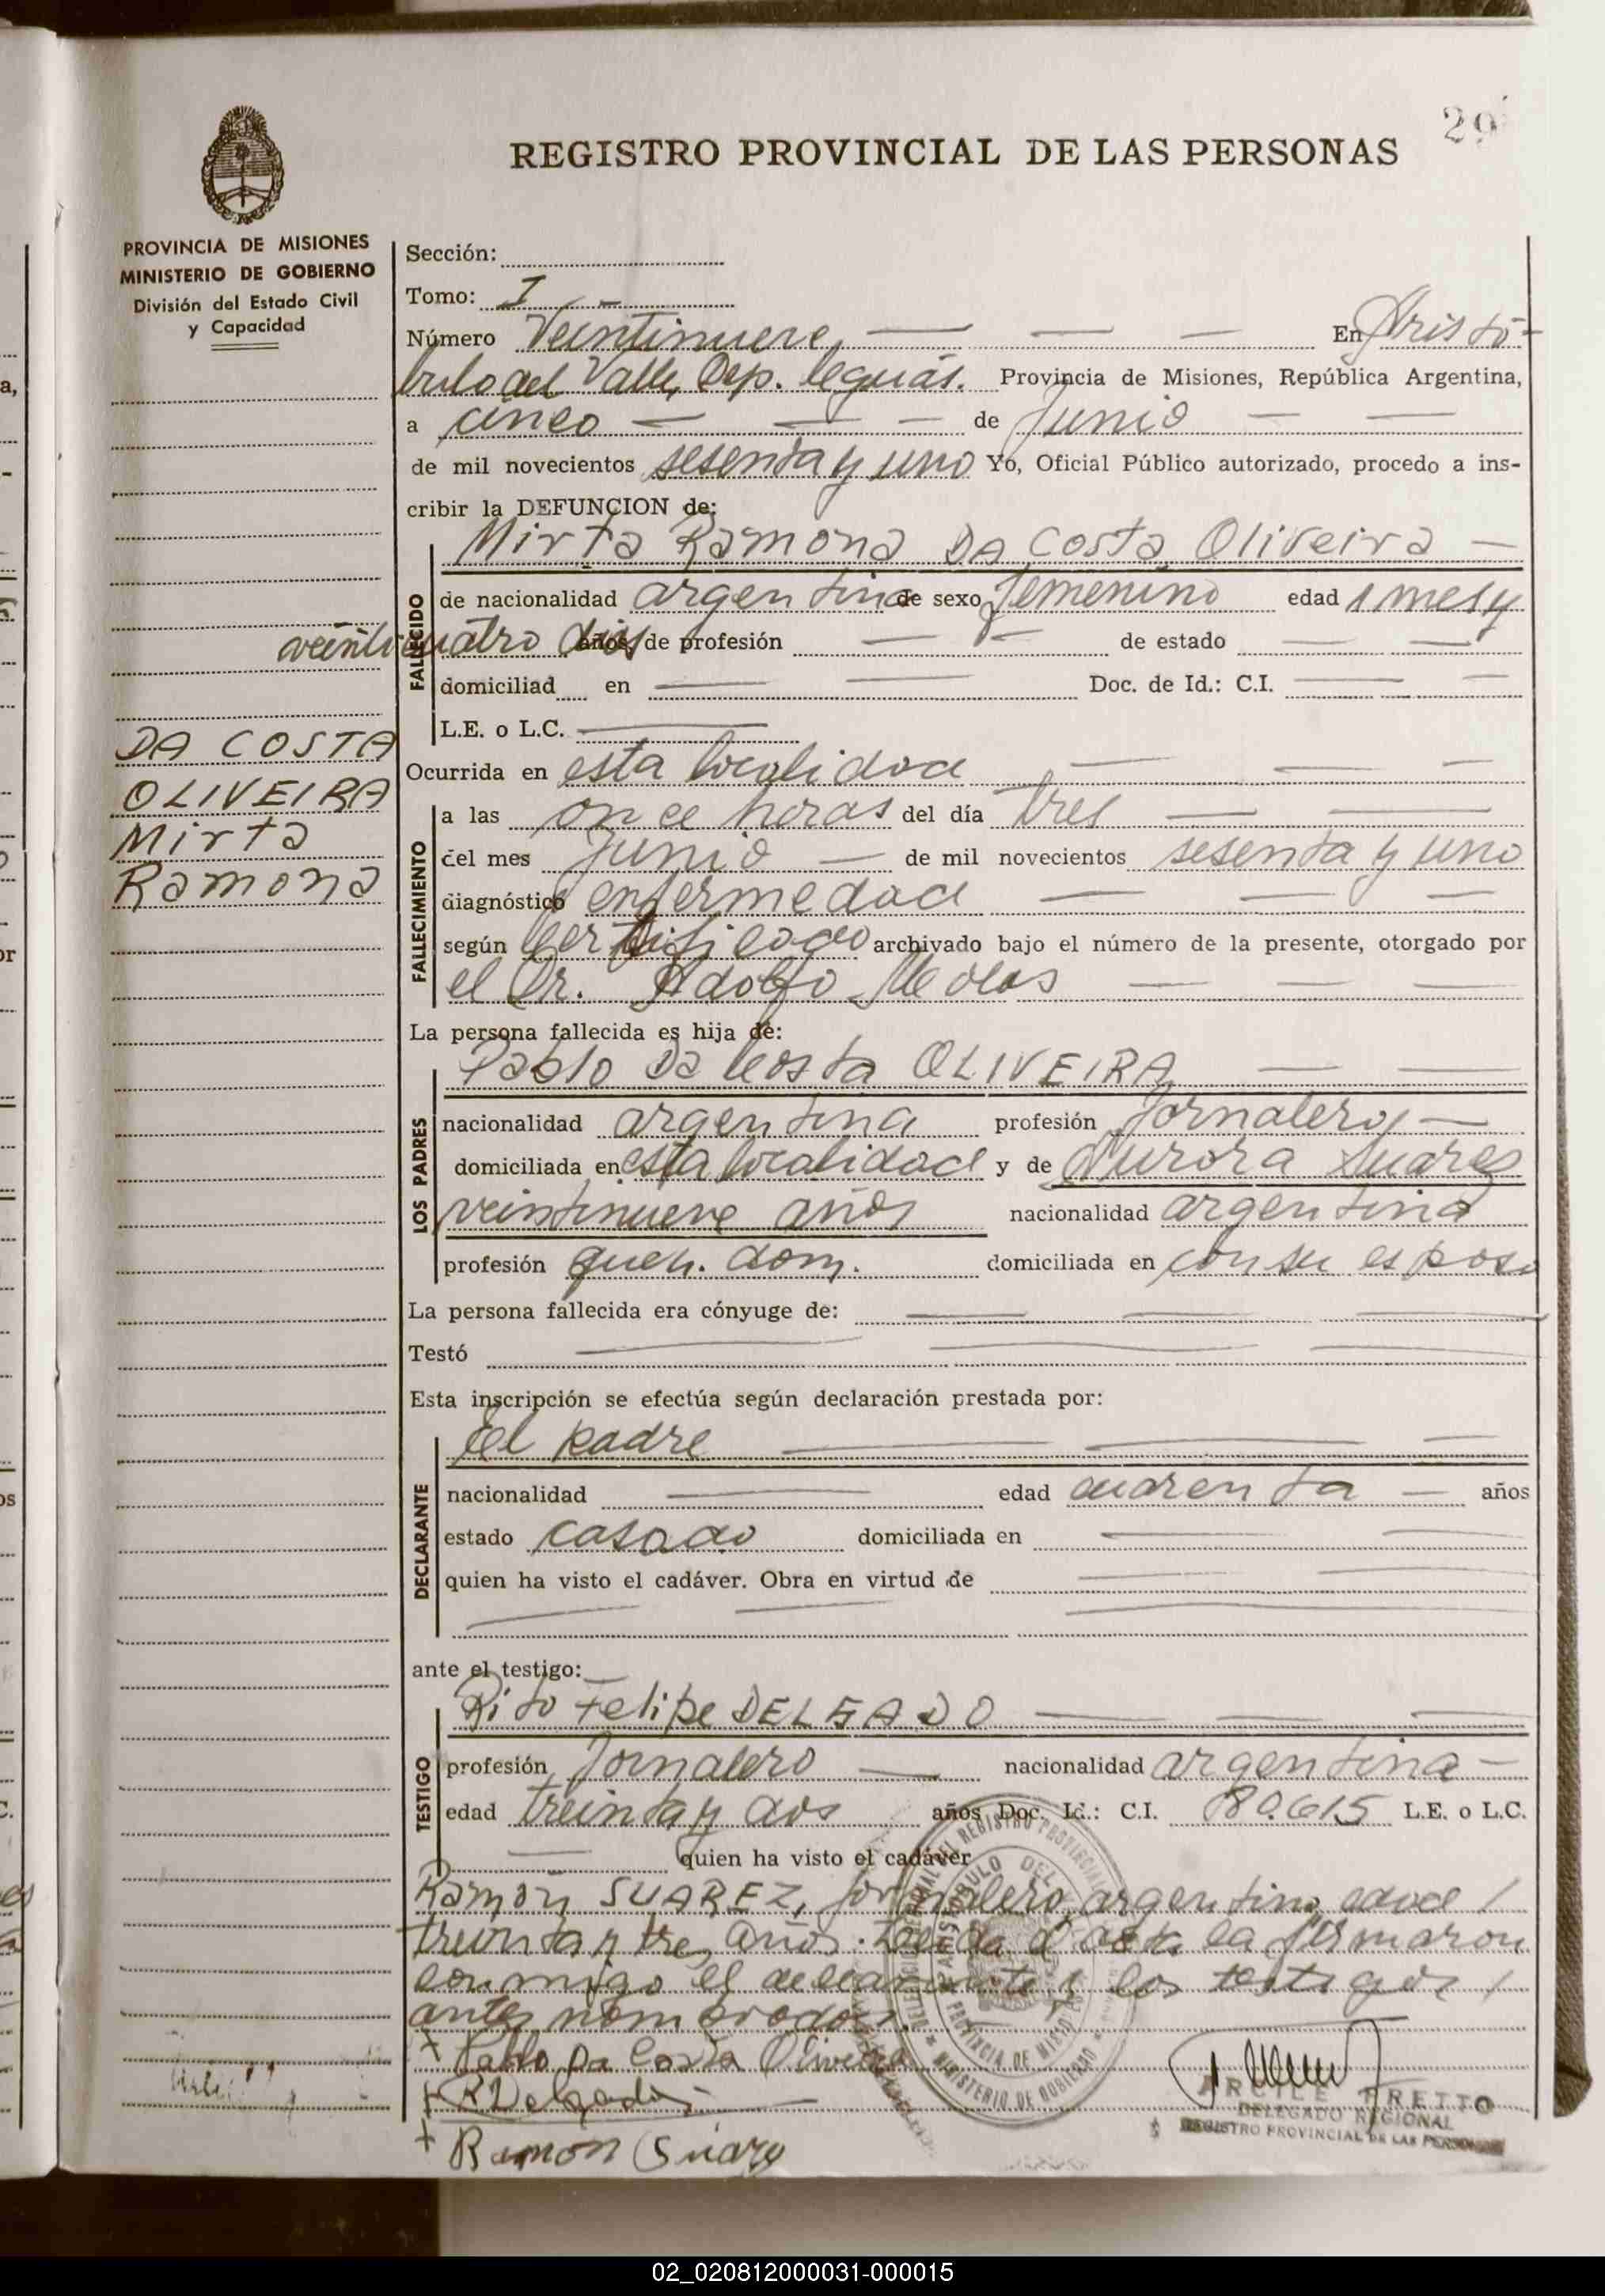 29
REGISTRO PROVINCIAL DE LAS PERSONAS
PROVINCIA DE MISIONES
MINISTERIO DE GOBIERNO
División del Estado Civil
y Capacidad
DA COSTA
OLIVEIRA
Mirta
Ramona
Sección:
Tomo: I
Número Veintinueve En Aristó-
bulo del Valle, Dep. Provincia de Misiones, República Argentina,
a cinco de Junio
de mil novecientos sesenta y uno Yo, Oficial Público autorizado, procedo a ins-
cribir la DEFUNCION de:
Mirta Ramona DA Costa Oliveira
FALLECIDO
de nacionalidad argentina de sexo femenino edad 1 mes y
veinticuatro dias años, de profesión de estado
domiciliad en Doc. de Id.: C.I.
L.E. o L.C.
Ocurrida en esta localidad
FALLECIMIENTO
a las once horas del día tres
del mes Junio de mil novecientos sesenta y uno
diagnóstico enfermedad
según Certificado archivado bajo el número de la presente, otorgado por
el Dr. Adolfo
La persona fallecida es hija de:
Pablo Da Costa OLIVEIRA
LOS PADRES
nacionalidad argentina profesión Jornalero
domiciliada en esta localidad y de Aurora Suares
veintinueve años nacionalidad argentina
profesión queh. dom. domiciliada en con su esposo
La persona fallecida era cónyuge de:
Testó
Esta inscripción se efectúa según declaración prestada por:
El padre
DECLARANTE
nacionalidad edad cuarenta años
estado casado domiciliada en
quien ha visto el cadáver. Obra en virtud de
ante el testigo:
Rito Felipe DELGADO
TESTIGO
profesión Jornalero nacionalidad argentina
edad treinta y dos años Doc. Id.: C.I. 80.615 L.E. o L.C.
quien ha visto el cadáver
Ramón SUAREZ, jornalero, argentino, edad
treinta y tres años. Leida el acta la firmaron
conmigo el declarante y los testigos
antes nombrados.
+ Pablo Da Costa Oliveira
+ R Delgado
+ Ramón Suarez
DELEGADO REGIONAL
REGISTRO PROVINCIAL DE LAS PERSONAS
MINISTERIO DE GOBIERNO
PROVINCIA DE MISIONES
02_020812000031-000015